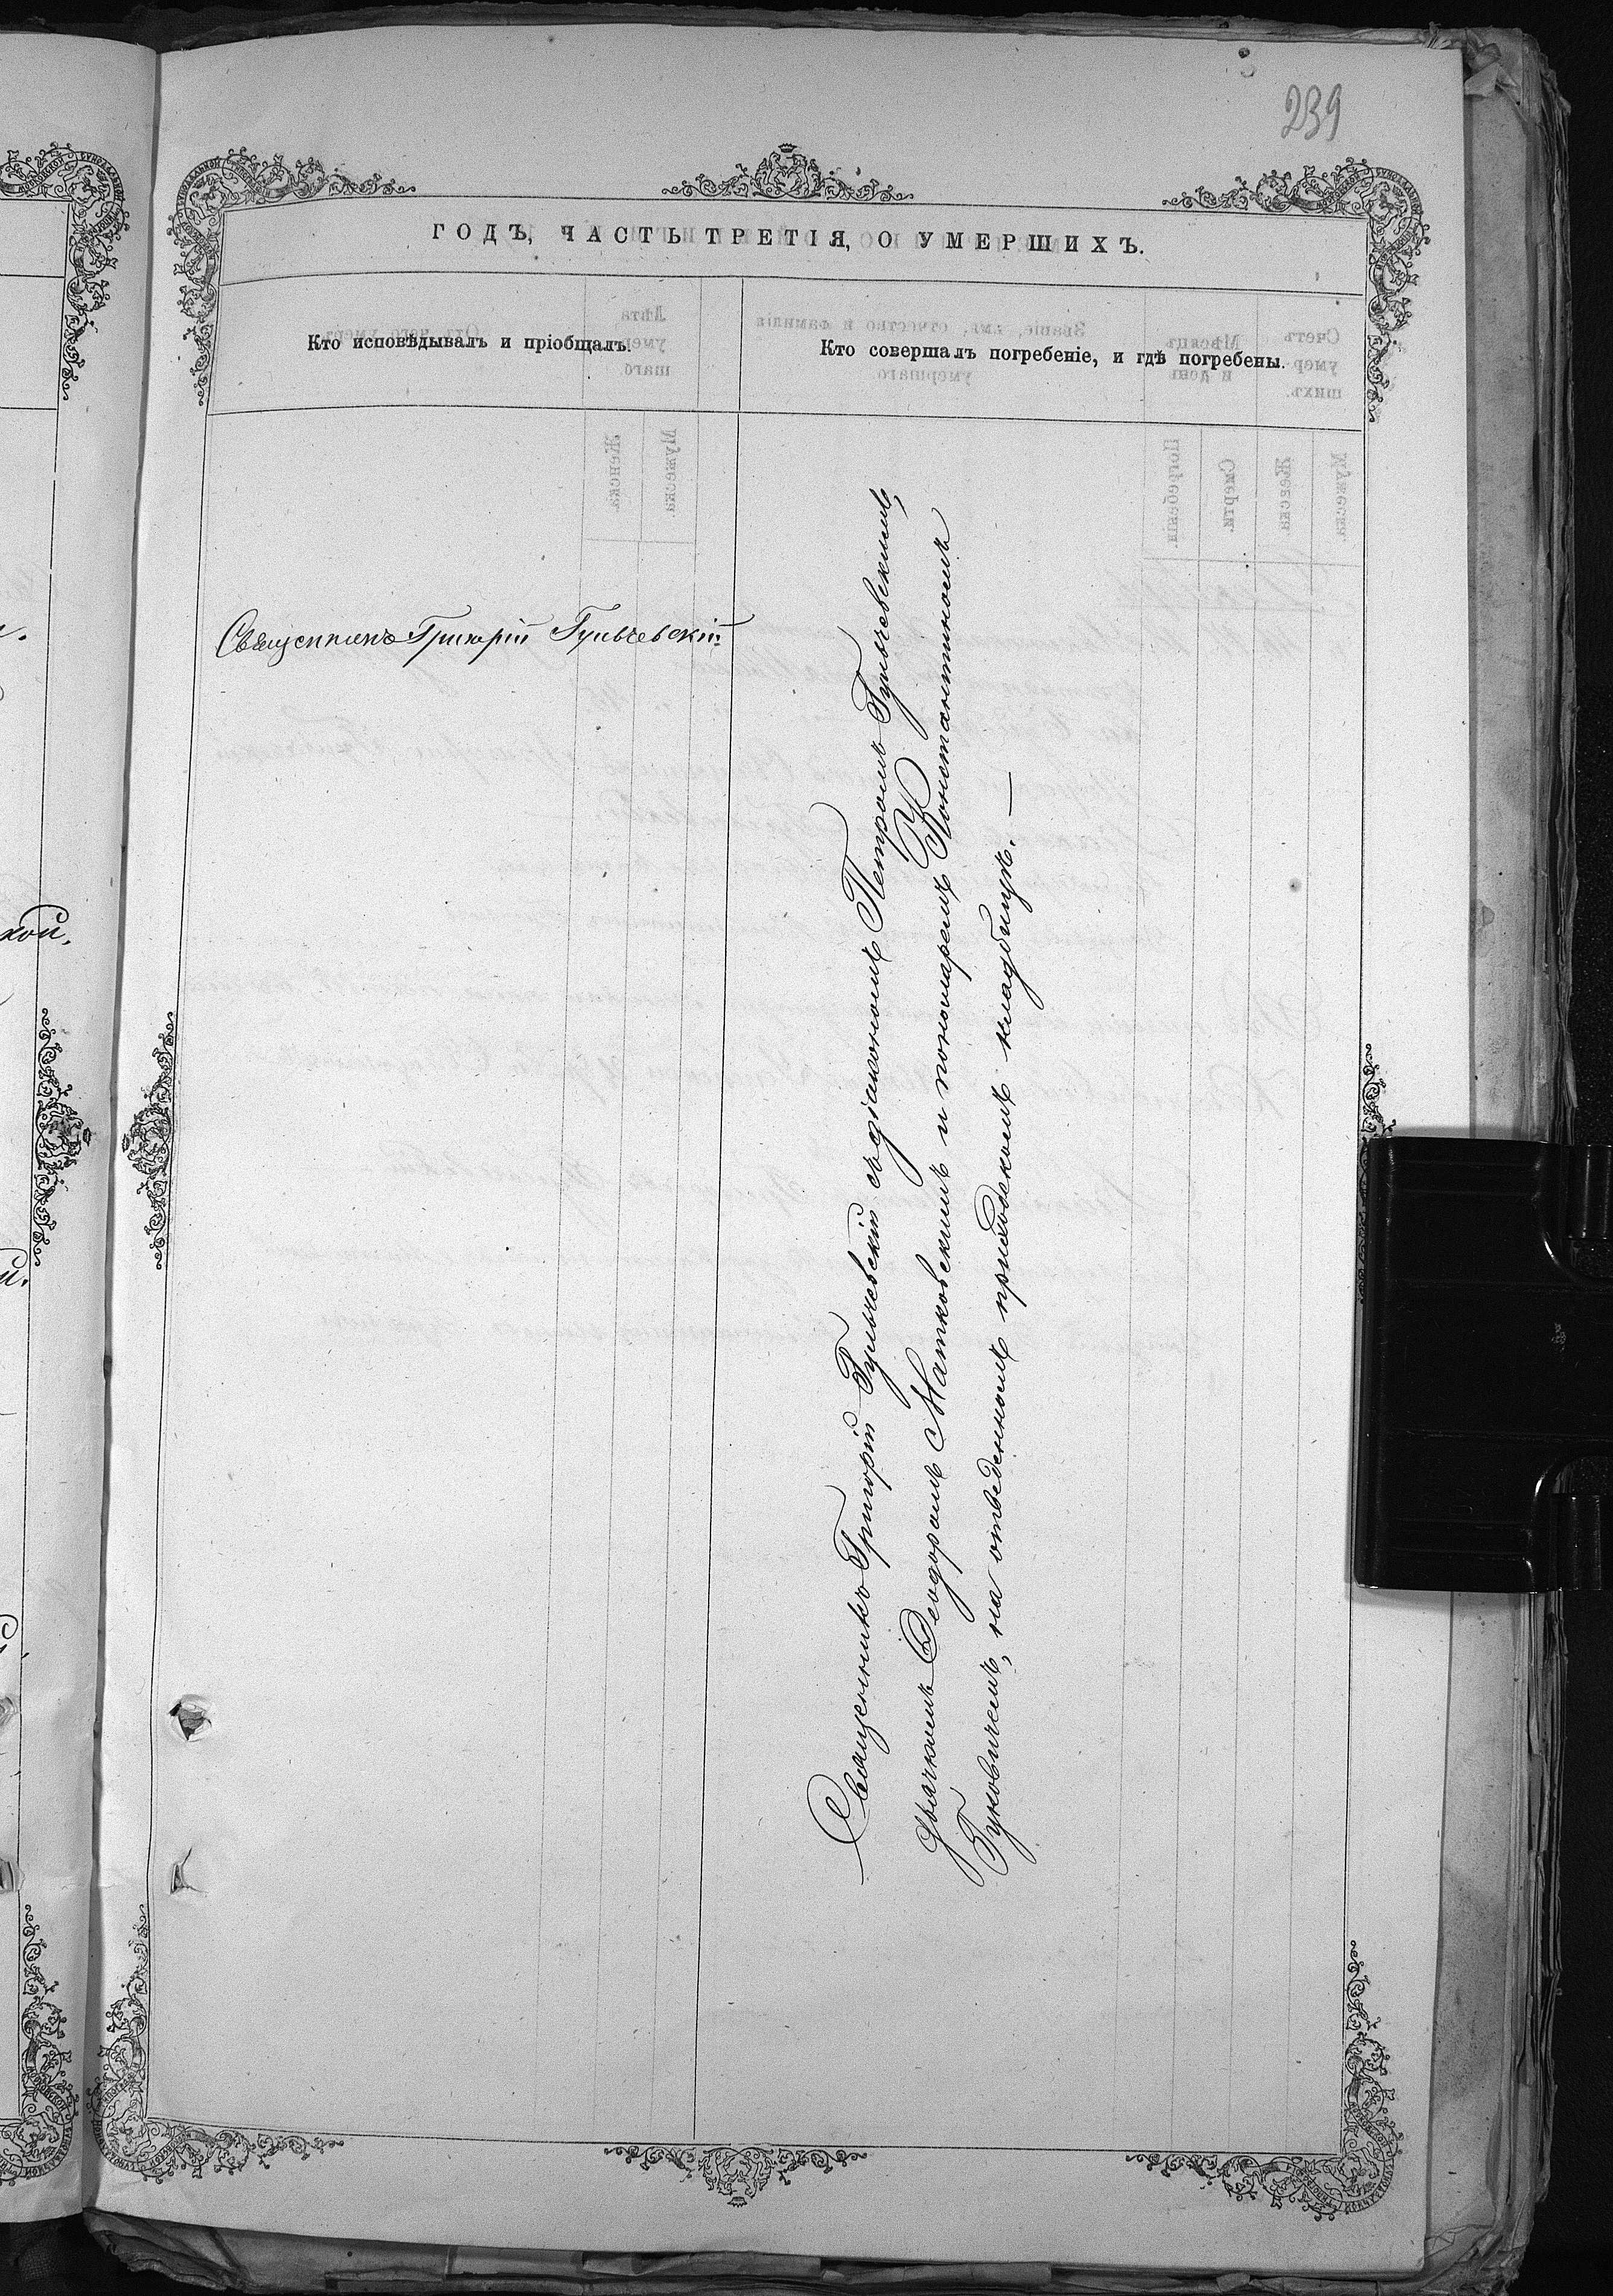 239
ГОДЪ, ЧАСТЬ ТРЕТІЯ, О УМЕРШИХЪ.
Кто исповѣдывалъ и пріобщалъ.
Кто совершалъ погребеніе, и гдѣ погребены.
Священникъ Григорій Гульчевскій
Священникъ Григорій Гульчевскій съ діакономъ Петромъ Гульчевскимъ,
дьячкомъ Ѳеодоромъ Матковскимъ и пономаремъ Константиномъ
на отведенномъ приходскомъ кладбищѣ. —